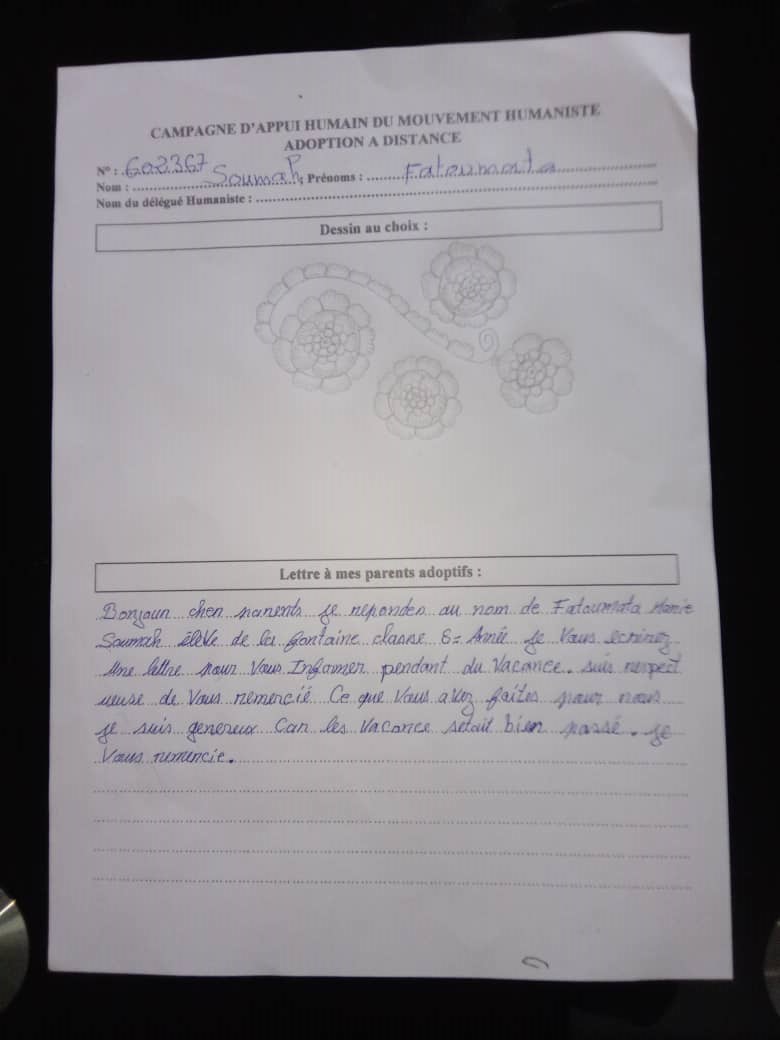 CAMPAGNE D'APPUI HUMAIN DU MOUVEMENT HUMANISTE
ADOPTION A DISTANCE
N° : 602367
Nom : Soumah ; Prénoms : Fatoumata
Nom du délégué Humaniste :
Dessin au choix :
Lettre à mes parents adoptifs :
Bonjour cher parents je repondes au nom de Fatoumata Marie
Soumah élève de la fontaine classe 8= Année je Vous ecrirez
une lettre pour Vous Informer pendant du Vacance. suis respect
ueuse de Vous remercié Ce que Vous avez faites pour nous
je suis genereux Car les Vacance setait bien passé. je
Vous remercie.